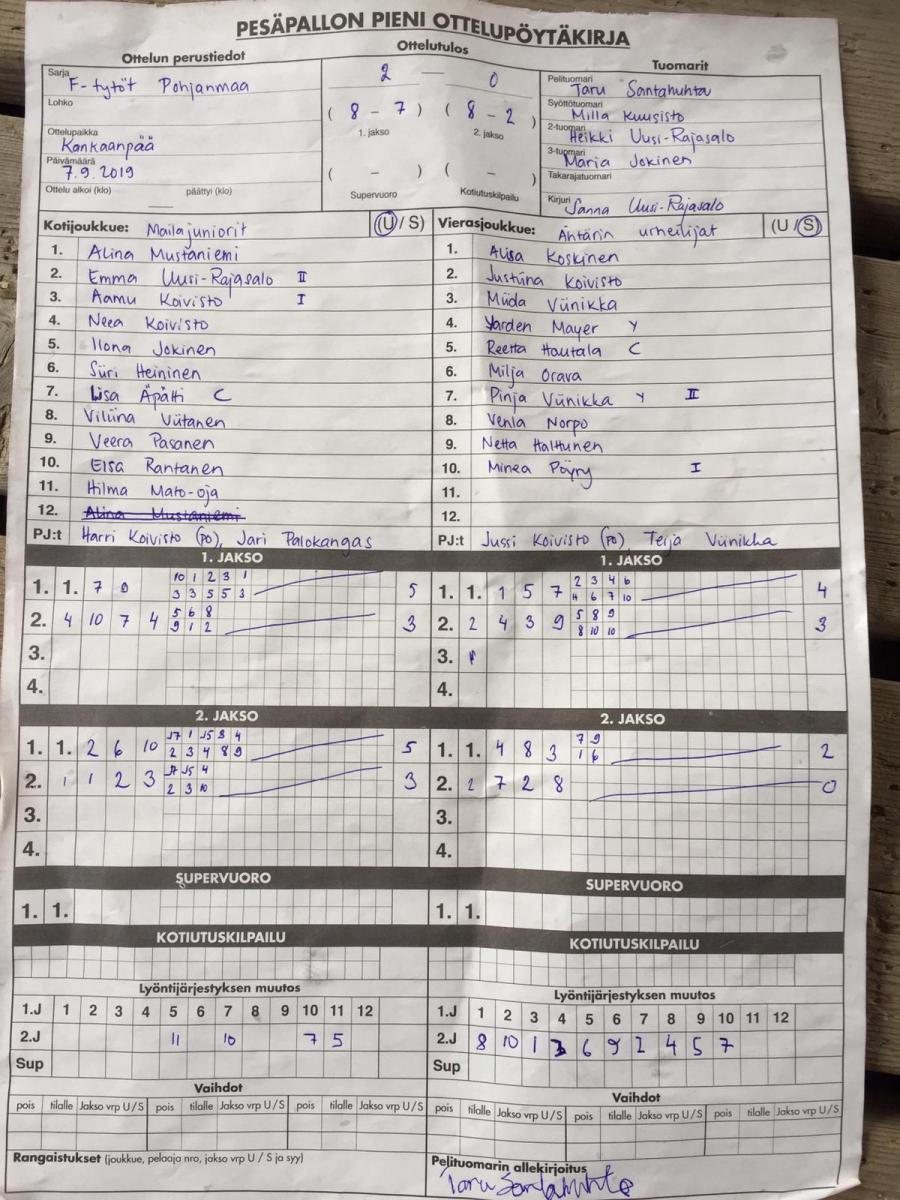 PESÄPALLON PIENI OTTELUPÖYTÄKIRJA
Ottelun perustiedot
Sarja F-tytöt Pohjanmaa
Lohko
Ottelupaikka Kankaanpää
Päivämäärä 7.9.2019
Ottelu alkoi (klo) päättyi (klo)
Ottelutulos
2 — 0
( 8 - 7 ) ( 8 - 2 )
1. jakso 2. jakso
( - ) ( - )
Supervuoro Kotiutuskilpailu
Tuomarit
Pelituomari Taru Santahuhta
Syöttötuomari Milla Kuusisto
2-tuomari Heikki Uusi-Rajasalo
3-tuomari Marja Jokinen
Takarajatuomari
Kirjuri Sanna Uusi-Rajasalo
Kotijoukkue: Mailajuniorit (U/S)
1. Alina Mustaniemi
2. Emma Uusi-Rajasalo II
3. Aamu Koivisto I
4. Neea Koivisto
5. Ilona Jokinen
6. Siiri Heininen
7. Lisa Äpätti C
8. Viliina Viitanen
9. Veera Pasanen
10. Elsa Rantanen
11. Hilma Mato-oja
12. Alina Mustaniemi
PJ:t Harri Koivisto (po), Jari Palokangas
Vierasjoukkue: Ähtärin urheilijat (U/S)
1. Alisa Koskinen
2. Justiina Koivisto
3. Miida Viinikka
4. Yarden Mayer Y
5. Reetta Hautala C
6. Milja Orava
7. Pinja Viinikka Y II
8. Venla Norpo
9. Netta Halttunen
10. Minea Pöyry I
11.
12.
PJ:t Jussi Koivisto (po), Teija Viinikka
1. JAKSO
10 1 2 3 1
1. 1. 7 9 3 3 5 5 3 5
5 6 8
2. 4 10 7 4 9 1 2 3
3.
4.
1. JAKSO
2 3 4 6
1. 1. 1 5 7 4 6 7 10 4
5 8 9
2. 2 4 3 9 8 10 10 3
3.
4.
2. JAKSO
1. 1. 2 6 10 2 3 4 8 9 5
2. 1 1 2 3 2 3 10 3
3.
4.
2. JAKSO
7 9
1. 1. 4 8 3 1 6 2
2. 2 7 2 8 0
3.
4.
SUPERVUORO
1. 1.
SUPERVUORO
1. 1.
KOTIUTUSKILPAILU
KOTIUTUSKILPAILU
Lyöntijärjestyksen muutos
1.J 1 2 3 4 5 6 7 8 9 10 11 12
2.J 11 10 7 5
Sup
Lyöntijärjestyksen muutos
1.J 1 2 3 4 5 6 7 8 9 10 11 12
2.J 8 10 1 3 6 9 2 4 5 7
Sup
Vaihdot
pois tilalle Jakso vrp U/S pois tilalle Jakso vrp U/S pois tilalle Jakso vrp U/S
Vaihdot
pois tilalle Jakso vrp U/S pois tilalle Jakso vrp U/S pois tilalle Jakso vrp U/S
Rangaistukset (joukkue, pelaaja nro, jakso vrp U / S ja syy)
Pelituomarin allekirjoitus
Taru Santahuhta